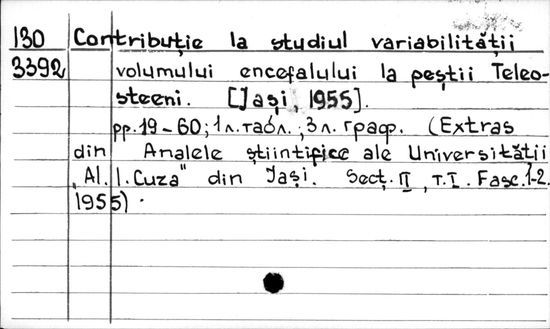 130 Contribuție la studiul variabilității
3392 volumului encefalului la peștii Teleo-
steeni. [Iași, 1955].
pp. 19-60; 1 л. табл.; 3 л. граф. (Extras
din Analele științifice ale Universității
"Al. I. Cuza" din Iași. Secț. II, T. I. Fasc. 1-2.
1955).